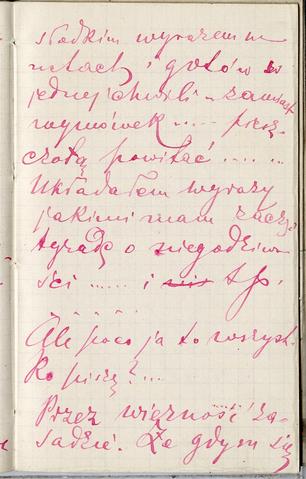 słodkim wyrazem w
ustach i gotów w
jednej chwili – zamiast
wymówek ..... piesz-
czotą powitać .....
Układałem wyrazy
jakimi mam zacząć
tyradę o niegodziwo-
ści ...... i t p.
. . . . . .
Ale poco ja to wszyst-
ko piszę?...
Przez wierność za-
sadzie. Że gdym się